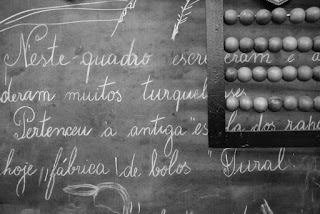 Neste quadro escreveram e a
deram muitos turquelenses
Pertenceu à antiga "escola dos rapa
hoje "fábrica de bolos"